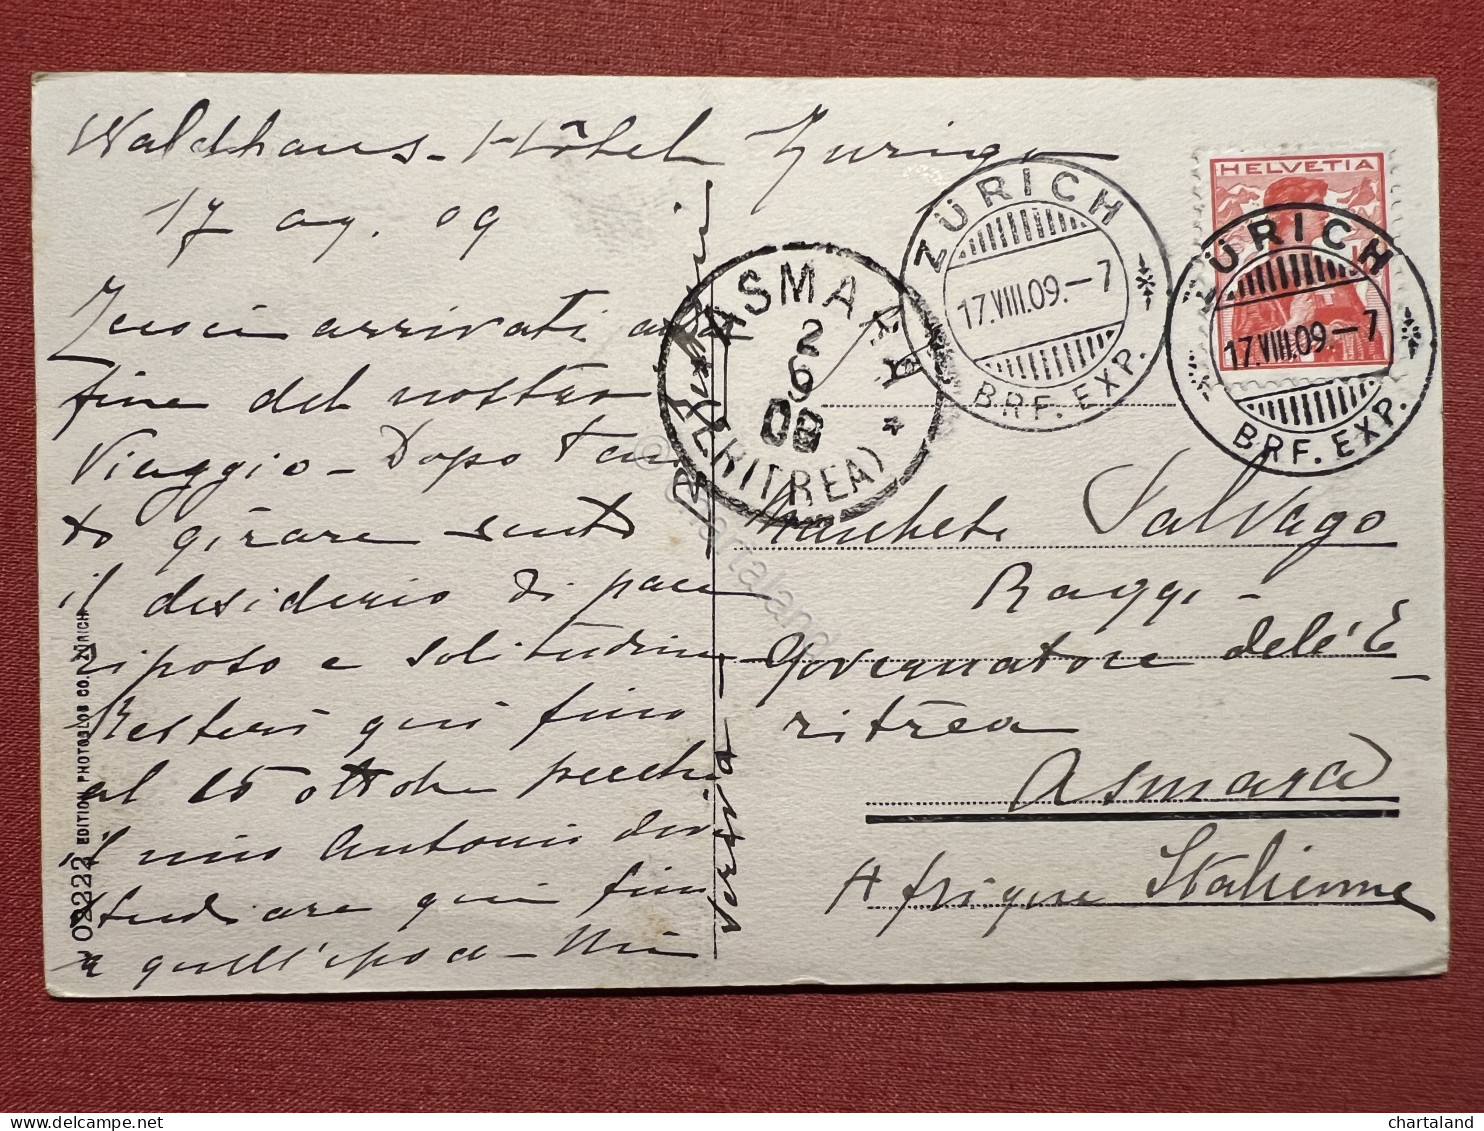 Waldhaus-Hôtel Zurigo
17 ag. 09
siam arrivati alla
fine del nostro
Viaggio - Dopo tan
to girare sento
il desiderio di pace
riposo e solitudine
Resterò qui fino
al 15 ottobre perchè
il mio Antonio deve
studiare qui fino
a quell'epoca - Mi
ASMARA
(ERITREA)
ZÜRICH
17.VIII.09.-7
BRF. EXP.
HELVETIA
ZÜRICH
17.VIII.09.-7
BRF. EXP.
Marchese Salvago
Raggi -
Governatore dell'E
ritrea
Asmara
Afrique Italienne
02222 EDITION PHOTOGLOB CO. ZÜRICH
© chartaland
delcampe.net
chartaland